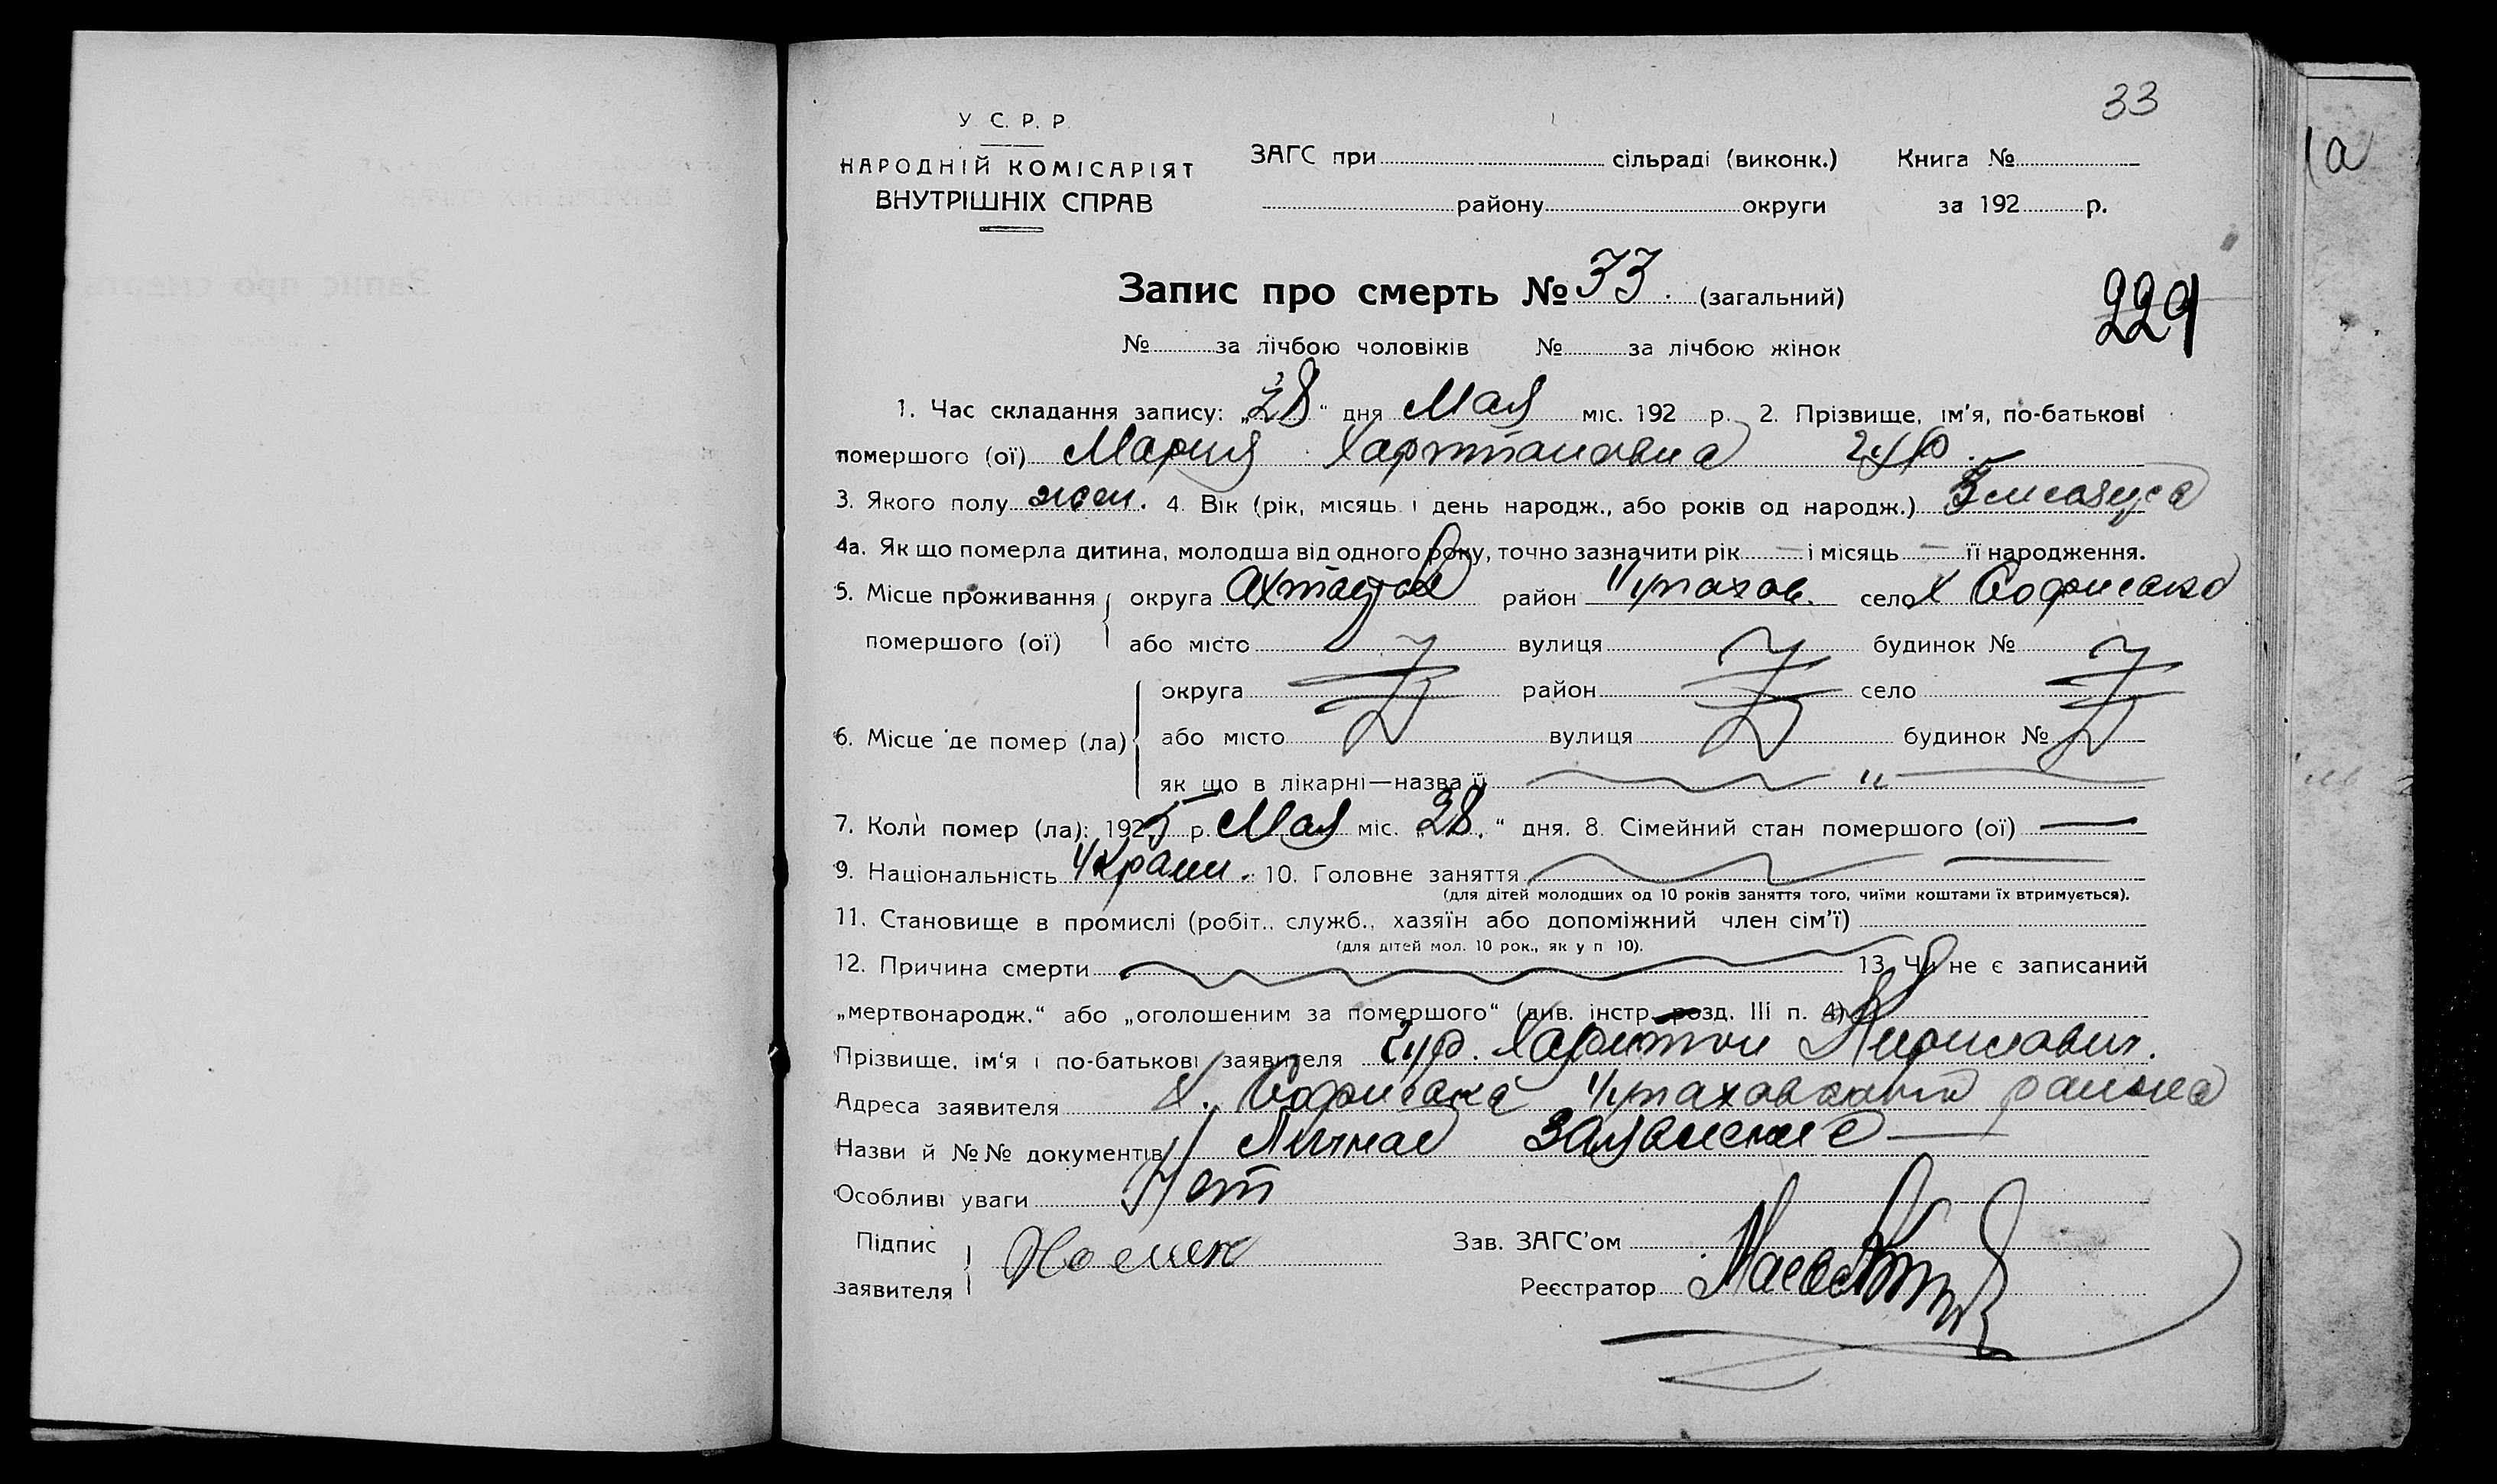 33
У С. Р. Р.
НАРОДНІЙ КОМІСАРІЯТ
ВНУТРІШНІХ СПРАВ
ЗАГС при сільраді (виконк.) Книга №
району округи за 192 р.
Запис про смерть № 33. (загальний)
229
№ за лічбою чоловіків № за лічбою жінок
1. Час складання запису: „28“ дня Мая міс. 192 р. 2. Прізвище, ім'я, по-батькові
помершого (ої) Мария
3. Якого полу жен. 4. Вік (рік, місяць і день народж., або років од народж.) 5 месяца
4а. Як що померла дитина, молодша від одного року, точно зазначити рік — і місяць — її народження.
5. Місце проживання округа район село Х
помершого (ої) або місто вулиця будинок №
округа район село
6. Місце де помер (ла) або місто вулиця будинок №
як що в лікарні—назва її "
7. Коли помер (ла): 1925 р. Мая міс. „28.“ дня. 8. Сімейний стан помершого (ої) —
9. Національність Украин. 10. Головне заняття
(для дітей молодших од 10 років заняття того, чиїми коштами їх втримується).
11. Становище в промислі (робіт., служб., хазяїн або допоміжний член сім'ї)
(для дітей мол. 10 рок., як у п 10).
12. Причина смерти 13. Чи не є записаний
„мертвонародж.“ або „оголошеним за помершого“ (див. інстр. розд. III п. 4)
Прізвище, ім'я і по-батькові заявителя Харитон Кирилович.
Адреса заявителя Х. района
Назви й №№ документів Личное заявление —
Особливі уваги Нет
Підпис
заявителя
Зав. ЗАГС'ом
Реєстратор